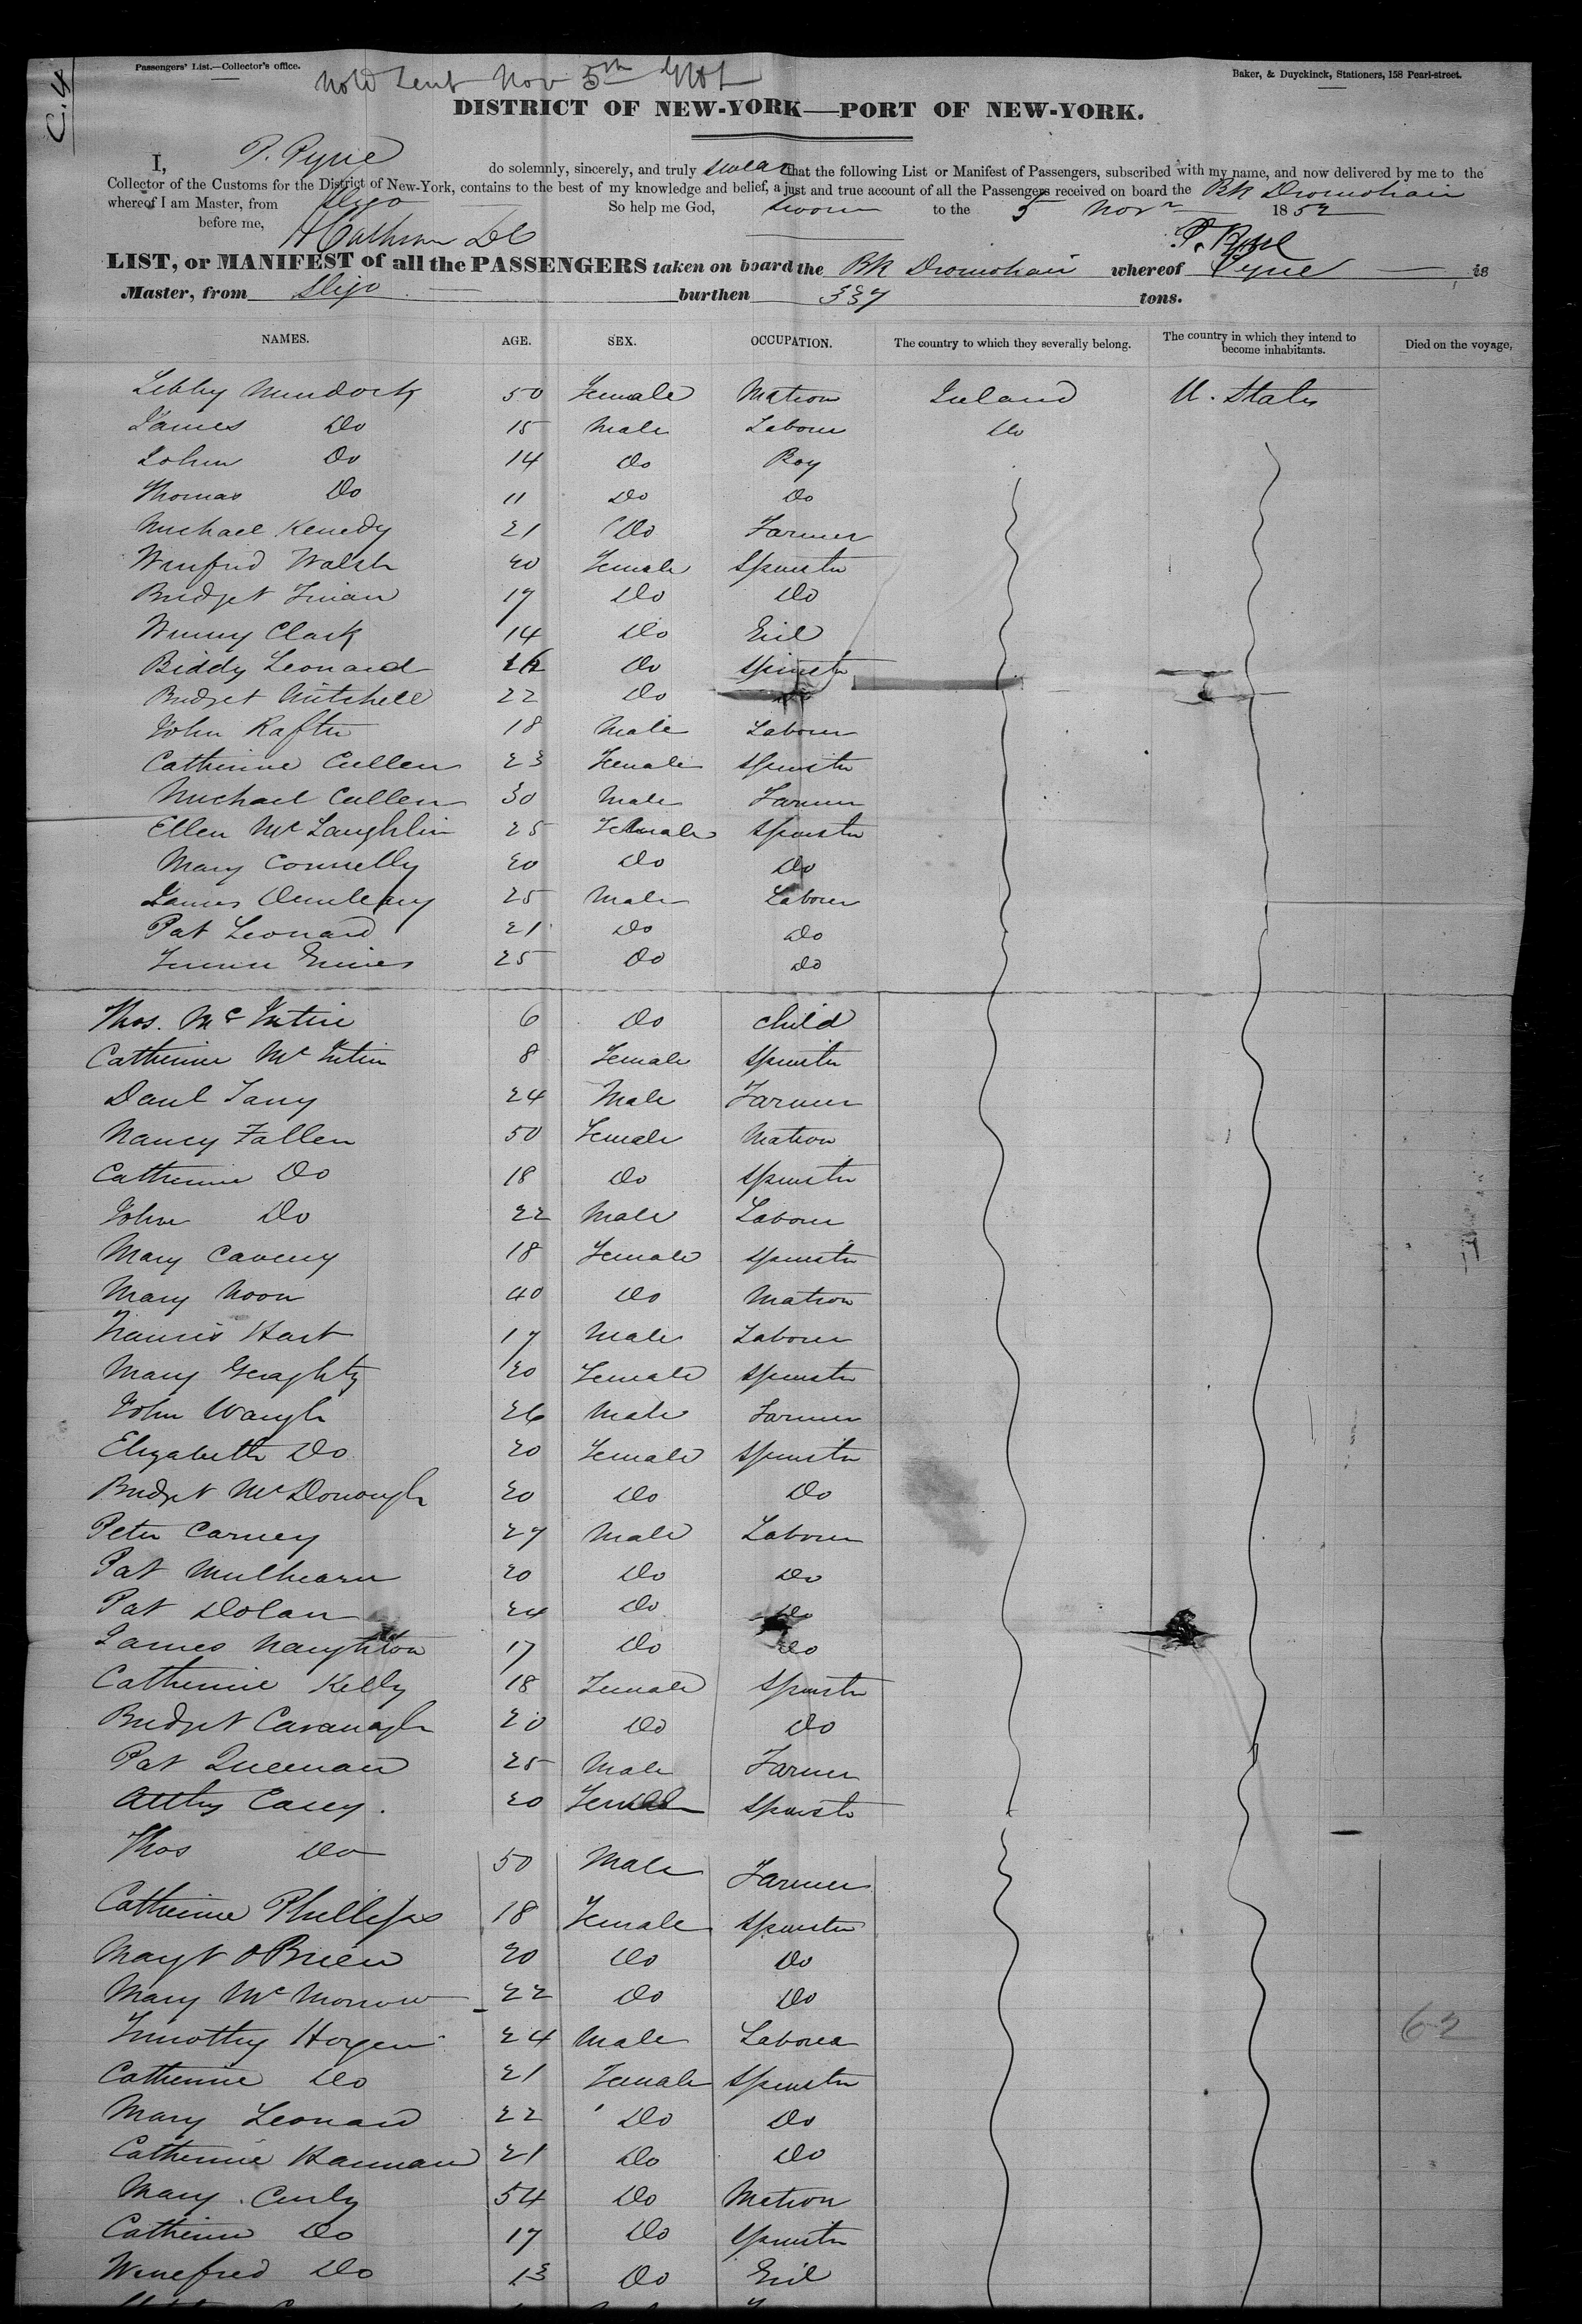 C. 4
Passengers' List.—Collector's office.
Sent Nov 5th
Baker, & Duyckinck, Stationers, 158 Pearl-street.
DISTRICT OF NEW-YORK—PORT OF NEW-YORK.
I, P. Pyne do solemnly, sincerely, and truly swear that the following List or Manifest of Passengers, subscribed with my name, and now delivered by me to the
Collector of the Customs for the District of New-York, contains to the best of my knowledge and belief, a just and true account of all the Passengers received on board the Bk Dromohair
whereof I am Master, from Sligo So help me God, Sworn to the 5 Novr 1852
before me, P. Pyne
LIST, or MANIFEST of all the PASSENGERS taken on board the Bk Dromohair whereof Pyne is
Master, from Sligo burthen 337 tons.
NAMES. AGE. SEX. OCCUPATION. The country to which they severally belong. The country in which they intend to become inhabitants. Died on the voyage,
Libby Murdock 50 Female Matron Ireland U. States
James Do 15 Male Labourer Do
John Do 14 Do Boy
Thomas Do 11 Do Do
Michael Kenedy 21 Do Farmer
Winifred Walsh 20 Female Spinster
Bridget Finan 17 Do Do
Winny Clark 14 Do Girl
Biddy Leonard Do Spinster
Bridget Mitchell 22 Do Do
John Rafter 18 Male Labourer
Catherine Cullen 23 Female Spinster
Michael Cullen 30 Male Farmer
Ellen McLaughlin 25 Female Spinster
Mary Connelly 20 Do Do
James 25 Male Labourer
Pat Leonard 21 Do Do
25 Do Do
Thos. McIntire 6 Do Child
Catherine McIntire 8 Female Spinster
Danl 24 Male Farmer
Nancy Fallen 50 Female Matron
Catherine Do 18 Do Spinster
John Do 22 Male Labourer
Mary Caveny 18 Female Spinster
Mary Noon 40 Do Matron
Francis Hart 17 Male Labourer
Mary Geraghty 20 Female Spinster
John Waugh 26 Male Farmer
Elizabeth Do 20 Female Spinster
Bridget McDonough 20 Do Do
Peter Carney 27 Male Labourer
Pat Mulhearn 20 Do Do
Pat Dolan 24 Do Do
James Naughton 17 Do Do
Catherine Kelly 18 Female Spinster
Bridget Cavanagh 20 Do Do
Pat 25 Male Farmer
Casey 20 Female Spinster
Thos Do 50 Male Farmer
Catherine Phillips 18 Female Spinster
Margt OBrien 20 Do Do
Mary McMorrow 22 Do Do
Timothy Hogen 24 Male Laborer
Catherine Do 21 Female Spinster
Mary Leonard 22 Do Do
Catherine Hannan 21 Do Do
Mary Curly 54 Do Matron
Catherine Do 17 Do Spinster
Winefred Do 13 Do Girl
62